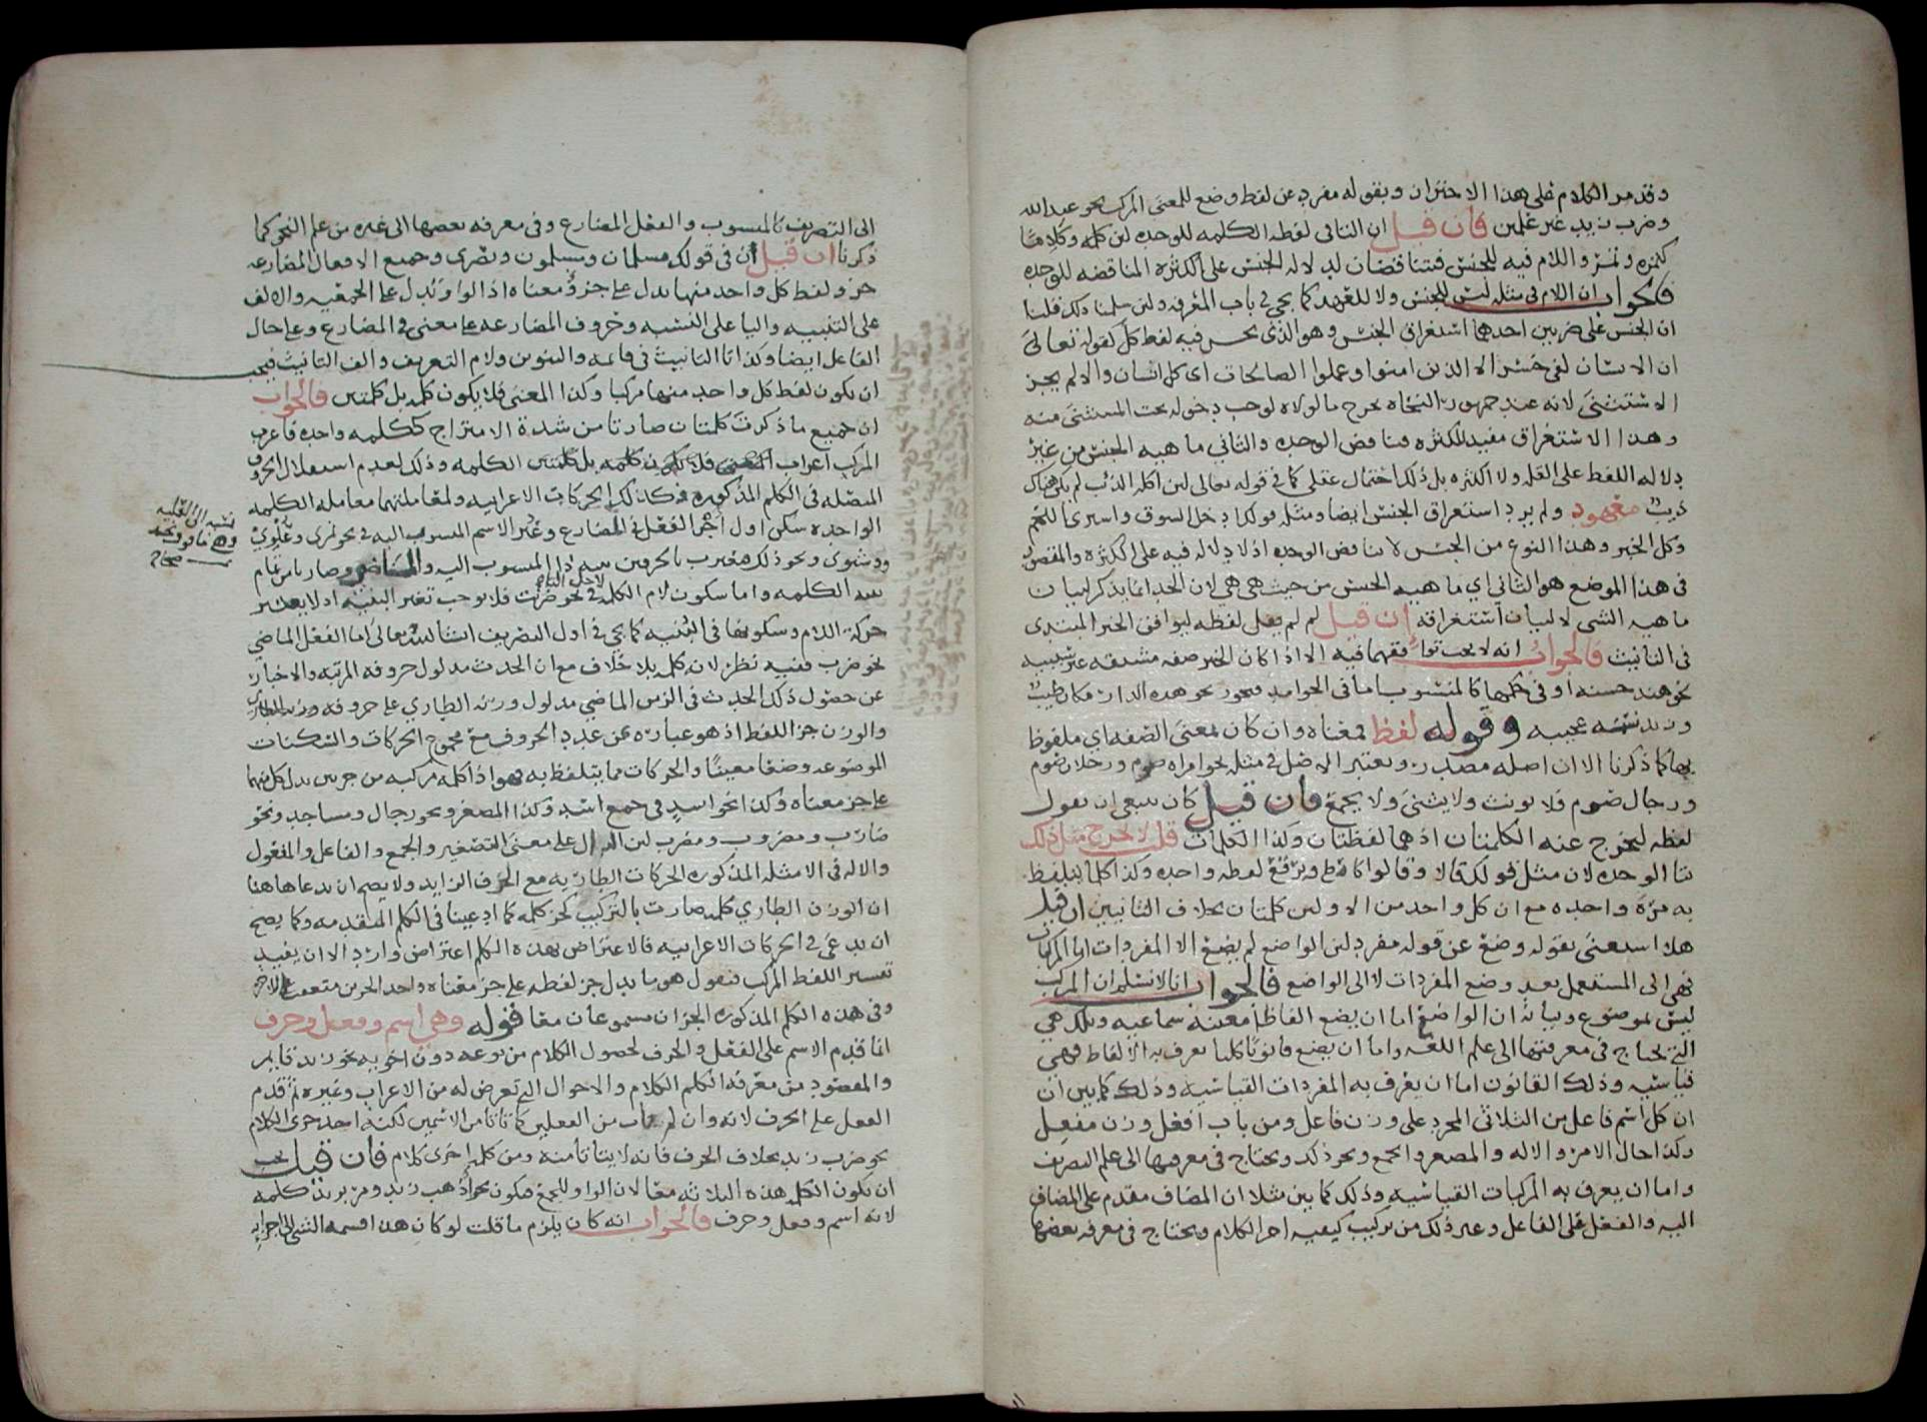 وقد مر الكلام على هذا الاحتران وبقوله مفرد عن لفظ وضع للمعنى المركب نحو عبد الله
وضرب زيد غير علمين فان قيل ان التا في لفظه الكلمه للوحده لان كلمه وكلاما
كتمره وتمر واللام فيه للجنس فيتناقضان لدلاله الجنس على الكثره المناقضه للوحده
فالجواب ان اللام في مثله ليس للجنس ولا للعهد كما يجي في باب المعرفه ولئن سلمنا ذلك قلنا
ان الجنس على ضربين احدهما استغراق الجنس وهو الذي يحسن فيه لفظ كل كقوله تعالى
ان الانسان لفي خسر الا الذين امنوا وعملوا الصالحات اي كل انسان والا لم يجز
الاستثنى لانه عند جمهور النحاه يخرج ما لولاه لوجب دخوله تحت المستثنى منه
وهذا الاستغراق مفيد للكثره فيناقض الوحده والثاني ماهيه الجنس من غير
دلاله اللفظ على القله ولا الكثره بل ذلك احتمال عقلي كما في قوله تعالى لئن اكله الذئب لم يكن هناك
ذيب معهود ولم يرد استغراق الجنس ايضا ومثله قولك ادخل السوق واستر اللحم
وكل الخبز وهذا النوع من الجنس لا يناقض الوحده اذ لا دلاله فيه على الكثره والمقصود
في هذا الموضع هو الثاني اي ماهيه الجنس من حيث هي هي لان الحد انما يذكر لبيان
ماهيه الشي لا لبيان استغراقه ان قيل لم لم يقل لفظه ليوافق الخبر المبتدى
في التانيث فالجواب انه لا يجب توافقهما فيه الا اذا كان الخبر صفه مشتقه غير سببيه
نحو هند حسنه او في حكمها كالمنسوب اما في الجوامد فيجوز نحو هذه الدار مكان طيب
وزيد نسمه عجيبه وقوله لفظ معناه وان كان بمعنى الصفه اي ملفوظ
بها كما ذكرنا الا ان اصله مصدر ويعتبر الاصل في مثله نحو امراه صوم ورجلان صوم
ورجال صوم فلا يونث ولا يثنى ولا يجمع فان قيل كان ينبغي ان يقول
لفظه ليخرج عنه الكلمتان اذ هما لفظتان وكذا الكلمات قلت لا يخرج مثل ذلك
بتا الوحده لان مثل قولك قالا وقالوا كلفظ ويرفع لفظه واحده وكذا كلما يتلفظ
به مره واحده مع ان كل واحد من الاولين كلمتان بخلاف الثانيين ان قيل
هلا استغنى بقوله وضع عن قوله مفرد لان الواضع لم يضع الا المفردات اما المركبات
فهي الى المستعمل بعد وضع المفردات لا الى الواضع فالجواب انا لا نسلم ان المركب
ليس بموضوع وبيانه ان الواضع اما ان يضع الفاظا معينه سماعيه وتلك هي
التي يحتاج في معرفتها الى علم اللغه واما ان يضع قانونا كليا يعرف به الالفاظ فهي
قياسيه وذلك القانون اما ان يعرف به المفردات القياسيه وذلك كما بين ان
ان كل اسم فاعل من الثلاثي المجرد على وزن فاعل ومن باب افعل وزن مفعل
وكذا حال الامر والاله والمصغر والجمع ونحو ذلك ويحتاج في معرفتها الى علم التصريف
واما ان يعرف به المركبات القياسيه وذلك كما بين مثلا ان المضاف مقدم على المضاف
اليه والفعل على الفاعل وغير ذلك من تركيب كيفيه اجزا الكلام ويحتاج في معرفه بعضها
الى التصريف كالمنسوب والفعل المضارع وفي معرفه بعضها الى غيره من علم النحو كما
ذكرنا ان قيل ان في قولك مسلمان ومسلمون وبصرى وجميع الافعال المضارعه
جزو لفظ كل واحد منها يدل على جزو معناه اذ الواو يدل على الجمعيه والالف
على التثنيه واليا على النسبه وحروف المضارعه على معنى في المضارع وعلى حال
الفاعل ايضا وكذا تا التانيث في قائمه والتنوين ولام التعريف والف التانيث فيجب
ان يكون لفظ كل واحد منها مركبا وكذا المعنى فلا يكون كلمه بل كلمتين فالجواب
ان جميع ما ذكرت كلمتان صارتا من شدة الامتزاج ككلمه واحده فاعرب
المركب اعراب الكلمه وذلك لعدم استقلال الحروف
المتصله في الكلم المذكوره وكذلك الحركات الاعرابيه ولمعاملتهما معامله الكلمه
الواحده سكن اول اجزا الفعل في المضارع وغير الاسم المنسوب اليه في نحو نمرى وعلوي
ووشوى ونحو ذلك فتغيرت بالحرفين بنيه المنسوب اليه والمضارع وصارتا من تمام
بنيه الكلمه واما سكون لام الكلمه في نحو ضربت فلا يوجب تغير البنيه اذ لا يعتبر
لاجل التا
حركة اللام وسكونها في البنيه كما يجي في اول التصريف ان شا الله تعالى اما الفعل الماضي
نحو ضرب ففيه نظر لانه كلمه بلا خلاف مع ان الحدث مدلول حروفه المرتبه والاخبار
عن حصول ذلك الحدث في الزمن الماضي مدلول وزنه الطاري على حروفه
والوزن جزا اللفظ اذ هو عباره عن عدد الحروف مع مجموع الحركات والسكنات
الموضوعه وضعا معينا والحركات مما يتلفظ به فهو اذا كلمه مركبه من جزين يدل كل منهما
على جز معناه وكذا نحو اسد في جمع اسد وكذا المصغر ونحو رجال ومساجد ونحو
ضارب ومضروب ومضرب لان الدال على معنى التصغير والجمع والفاعل والمفعول
والاله في الامثله المذكوره الحركات الطاريه مع الحرف الزايد ولا يصح ان يدعا هاهنا
ان الوزن الطاري كلمه صارت بالتركيب كجز كلمه كما ادعينا في الكلم المتقدمه وكما يصح
ان يدعى في الحركات الاعرابيه فالاعتراض بهذه الكلم اعتراض وارد الا ان يقيد
تفسير اللفظ المركب فنقول هو ما يدل جز لفظه على جز معناه واحد الجزين متعقب للاخر
وفي هذه الكلم المذكوره الجزان مسموعان معا قوله وهي اسم وفعل وحرف
انما قدم الاسم على الفعل والحرف لحصول الكلام من نوعه دون اخويه نحو زيد قايم
والمقصود من معرفه الكلم الكلام والاحوال التي تعرض له من الاعراب وغيره ثم قدم
الفعل على الحرف لانه وان لم يتات من الفعلين كما تاتا من الاسمين لكنه احد جزى الكلام
نحو ضرب زيد بخلاف الحرف فانه لا يتاتا منه ومن كلمه اخرى كلام فان قيل يجب
ان يكون الكلمه هذه الثلاثه معا لان الواو للجمع فيكون نحو اذهب زيد ومر بزيد كلمه
لانه اسم وفعل وحرف فالجواب انه كان يلزم ما قلت لو كان هذا قسمه الشي الى اجزايه